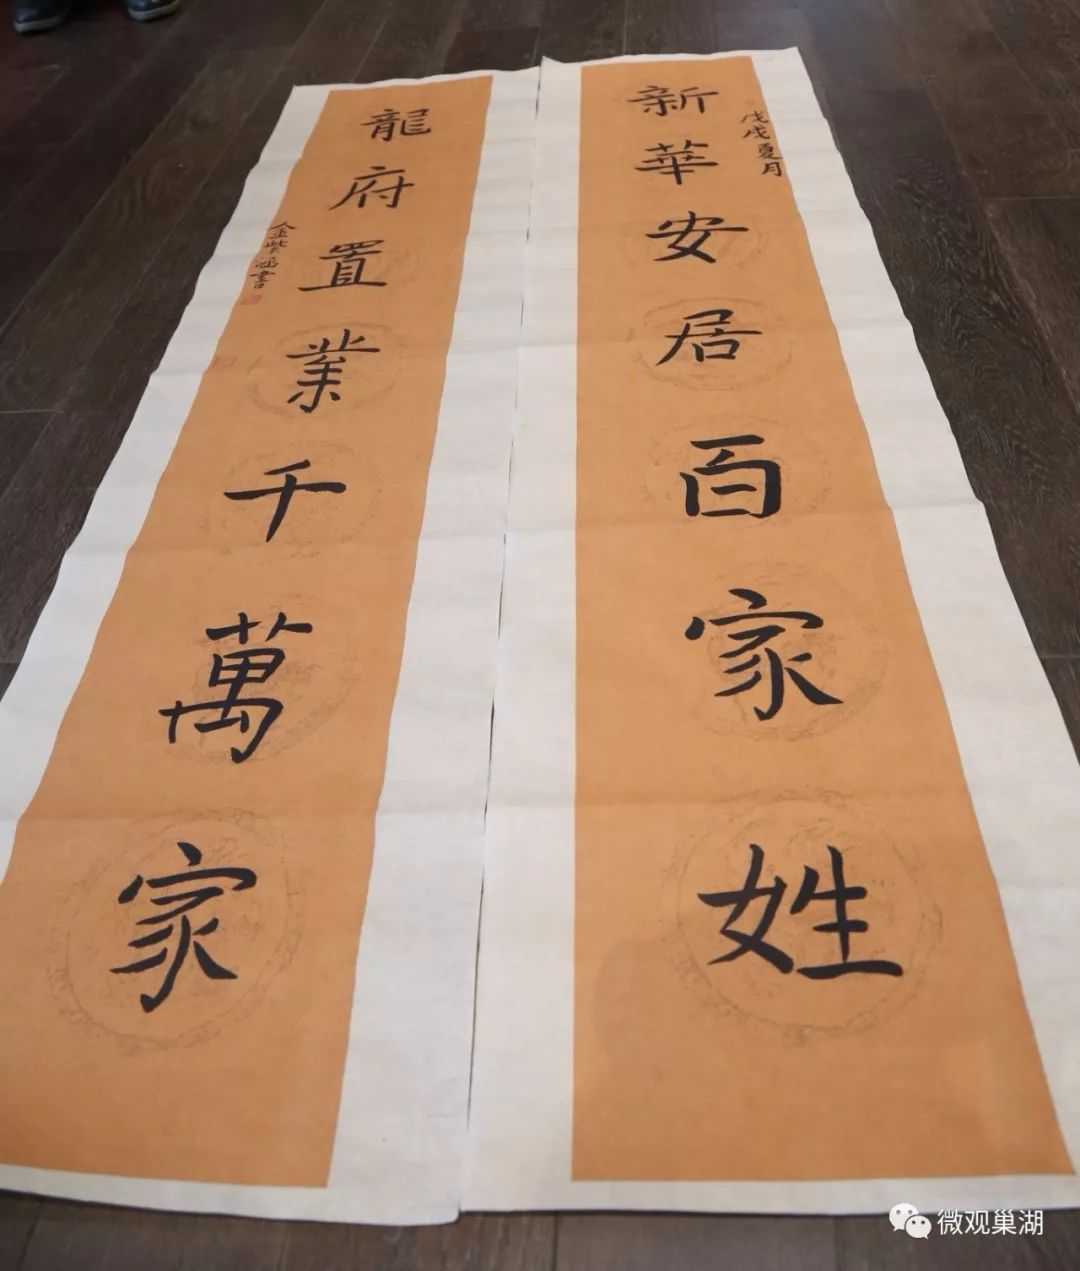 戊戌夏月
新華安居百家姓
龍府置業千萬家
金紫函書
微观巢湖